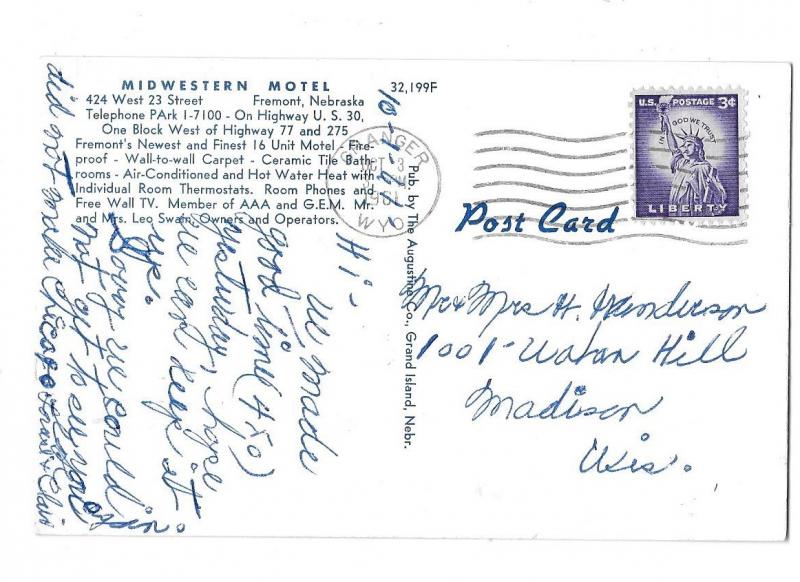 MIDWESTERN MOTEL
424 West 23 Street Fremont, Nebraska
Telephone PArk 1-7100 - On Highway U. S. 30,
One Block West of Highway 77 and 275
Fremont's Newest and Finest 16 Unit Motel - Fire-
proof - Wall-to-wall Carpet - Ceramic Tile Bath-
rooms - Air-Conditioned and Hot Water Heat with
Individual Room Thermostats. Room Phones and
Free Wall TV. Member of AAA and G.E.M. Mr.
and Mrs. Leo Swain, Owners and Operators.
32,199F
Pub. by The Augustine Co., Grand Island, Nebr.
GRANGER
OCT 3
WYO
U.S. POSTAGE 3¢
IN GOD WE TRUST
LIBERTY
Post Card
Mr & Mrs H.
1001 - Hill
Madison
Wis.
Hi -
We made
good time (450)
yesturday, hope
we can keep it
up.
Sorry we could
not get to see you
did not make Chicago